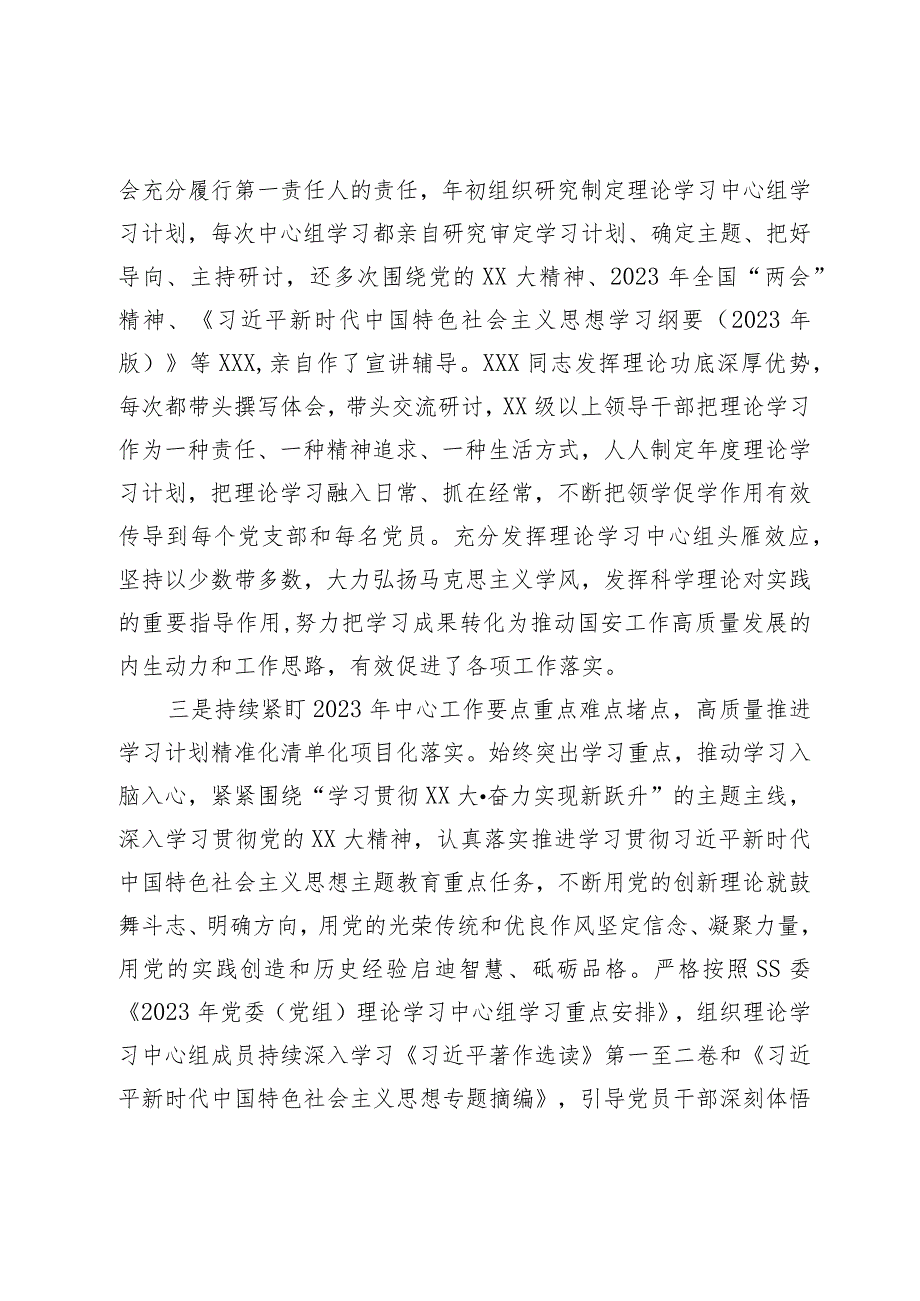 会充分履行第一责任人的责任，年初组织研究制定理论学习中心组学
习计划，每次中心组学习都亲自研究审定学习计划、确定主题、把好
导向、主持研讨，还多次围绕党的 XX 大精神、2023 年全国“两会”
精神、《习近平新时代中国特色社会主义思想学习纲要（2023 年
版）》等 XXX,亲自作了宣讲辅导。XXX 同志发挥理论功底深厚优势，
每次都带头撰写体会，带头交流研讨，XX 级以上领导干部把理论学习
作为一种责任、一种精神追求、一种生活方式，人人制定年度理论学
习计划，把理论学习融入日常、抓在经常，不断把领学促学作用有效
传导到每个党支部和每名党员。充分发挥理论学习中心组头雁效应，
坚持以少数带多数，大力弘扬马克思主义学风，发挥科学理论对实践
的重要指导作用,努力把学习成果转化为推动国安工作高质量发展的
内生动力和工作思路，有效促进了各项工作落实。
三是持续紧盯 2023 年中心工作要点重点难点堵点，高质量推进
学习计划精准化清单化项目化落实。始终突出学习重点，推动学习入
脑入心，紧紧围绕“学习贯彻 XX 大•奋力实现新跃升”的主题主线，
深入学习贯彻党的 XX 大精神，认真落实推进学习贯彻习近平新时代
中国特色社会主义思想主题教育重点任务，不断用党的创新理论就鼓
舞斗志、明确方向，用党的光荣传统和优良作风坚定信念、凝聚力量，
用党的实践创造和历史经验启迪智慧、砥砺品格。严格按照 SS 委
《2023 年党委（党组）理论学习中心组学习重点安排》，组织理论学
习中心组成员持续深入学习《习近平著作选读》第一至二卷和《习近
平新时代中国特色社会主义思想专题摘编》，引导党员干部深刻体悟